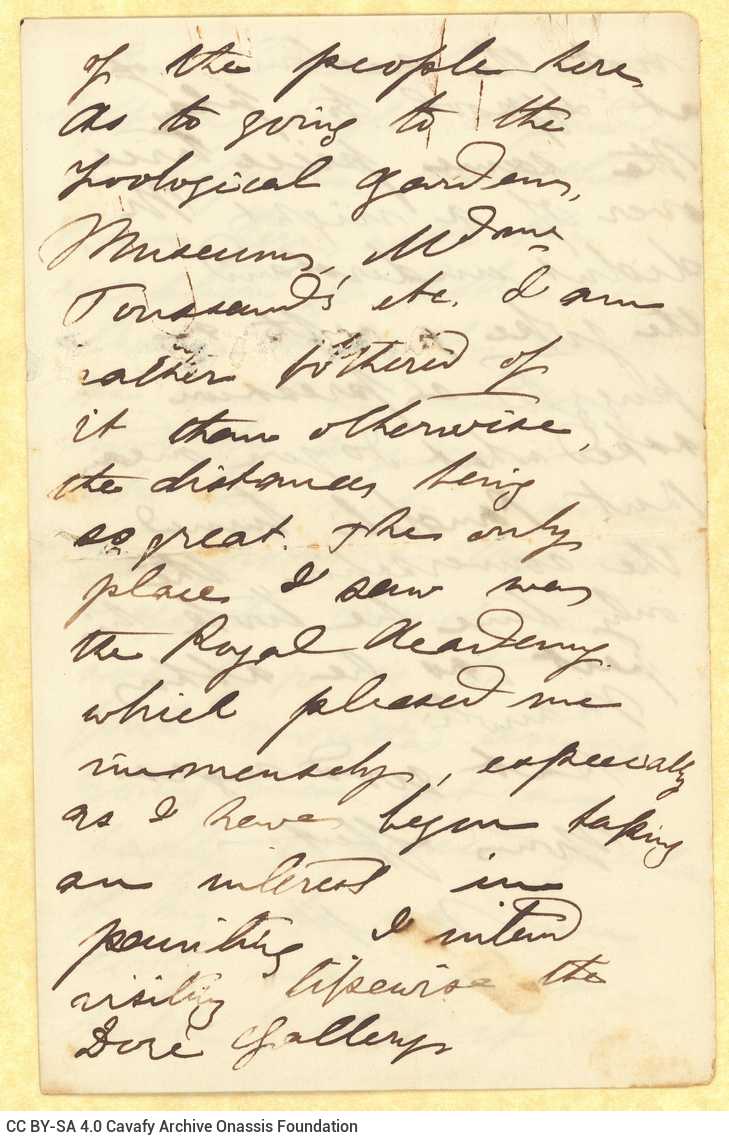 of the people here,
As to going to the
Zoological Gardens,
Museums, Mdme
Toussaud's etc. I am
rather bothered of
it than otherwise,
the distances being
so great. The only
place I saw was
the Royal Academy.
which pleased me
immensely, especially
as I have begun taking
an interest in
painting. I intend
visiting likewise the
Doré Gallery
CC BY-SA 4.0 Cavafy Archive Onassis Foundation